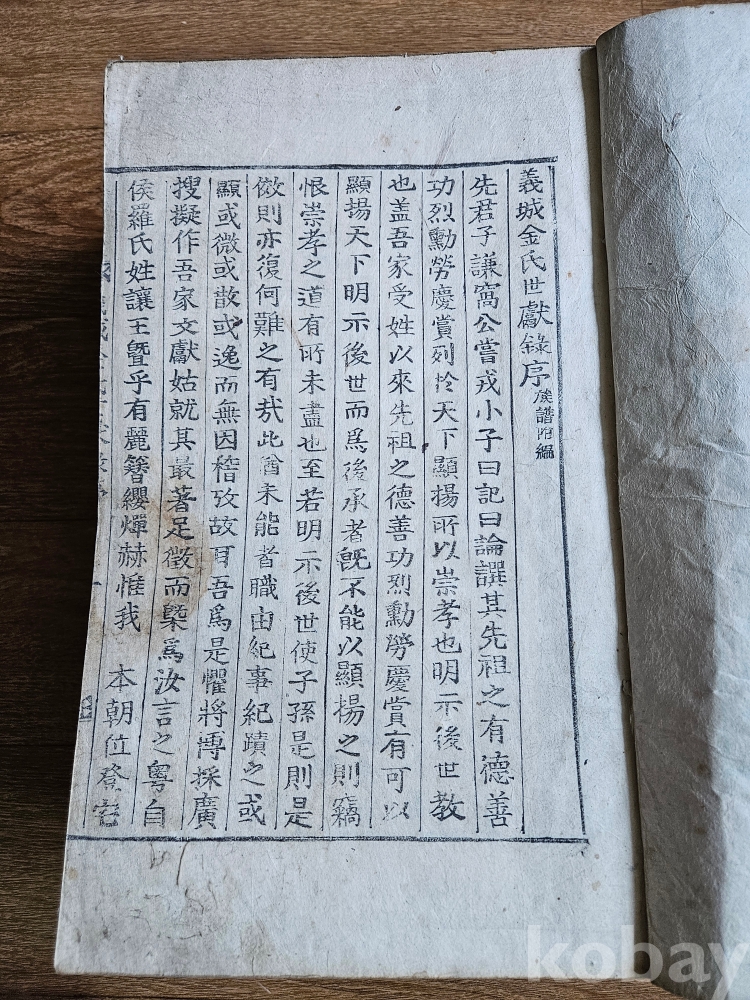 義城金氏世獻錄序 族譜附編
先君子謙窩公嘗戒小子曰記曰論譔其先祖之有德善
功烈勳勞慶賞列於天下顯揚所以崇孝也明示後世教
也盖吾家受姓以來先祖之德善功烈勳勞慶賞有可以
顯揚天下明示後世而爲後承者旣不能以顯揚之則竊
恨崇孝之道有所未盡也至若明示後世使子孫是則是
倣則亦復何難之有哉此猶未能者職由紀事紀蹟之或
顯或微或散或逸而無因稽攷故耳吾爲是懼將博採廣
搜擬作吾家文獻姑就其最著足徵而槩爲汝言之粤自
侯羅氏姓讓王曁乎有麗簪纓燀赫惟我 本朝位登宅
kobay